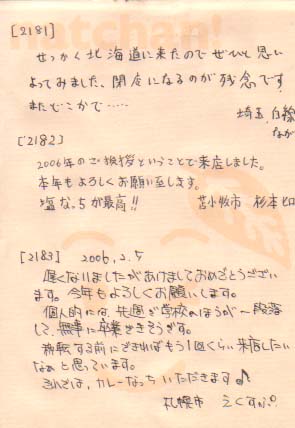 [2181]
せっかく北海道に来たのでぜひと思い
よってみました、閉店になるのが残念です
またどこかで・・・・・
埼玉、白
[2182]
2006年のご挨拶ということで来店しました。
本年もよろしくお願い致します。
塩なっちが最高!!
苫小牧市 杉本ヒロ
[2183] 2006.2.5
遅くなりましたがあけましておめでとうござい
ます。今年もよろしくお願いします。
個人的には、先週で学校のほうが一段落
して、無事に卒業できそうです。
移転する前にできればもう1回くらい来店したい
なぁと思っています。
それでは、カレーなっちいただきます♪
札幌市 えくすぷ